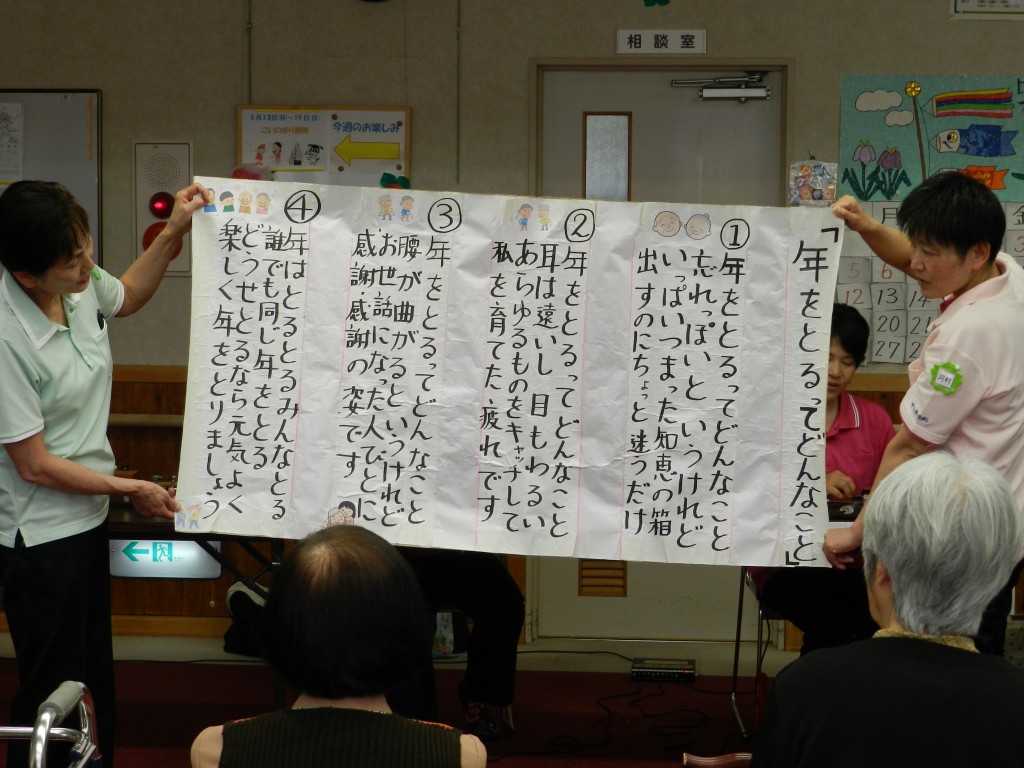 相談室
5月13日(月)~19日(日)
こいのぼり週間
今週のお楽しみ
「年をとるってどんなこと」
①年をとるってどんなこと
忘れっぽいというけれど
いっぱいつまった知恵の箱
出すのにちょっと迷うだけ
②年をとるってどんなこと
耳は遠いし目もわるい
あらゆるものをキャッチして
私を育てた疲れです
③年をとるってどんなこと
腰が曲がるというけれど
お世話になった人びとに
感謝感謝の姿です
④年はとるとるみんなとる
誰でも同じ年をとる
どうせとるなら元気よく
楽しく年をとりましょう
月
金
5
6
12
13
14
20
21
27